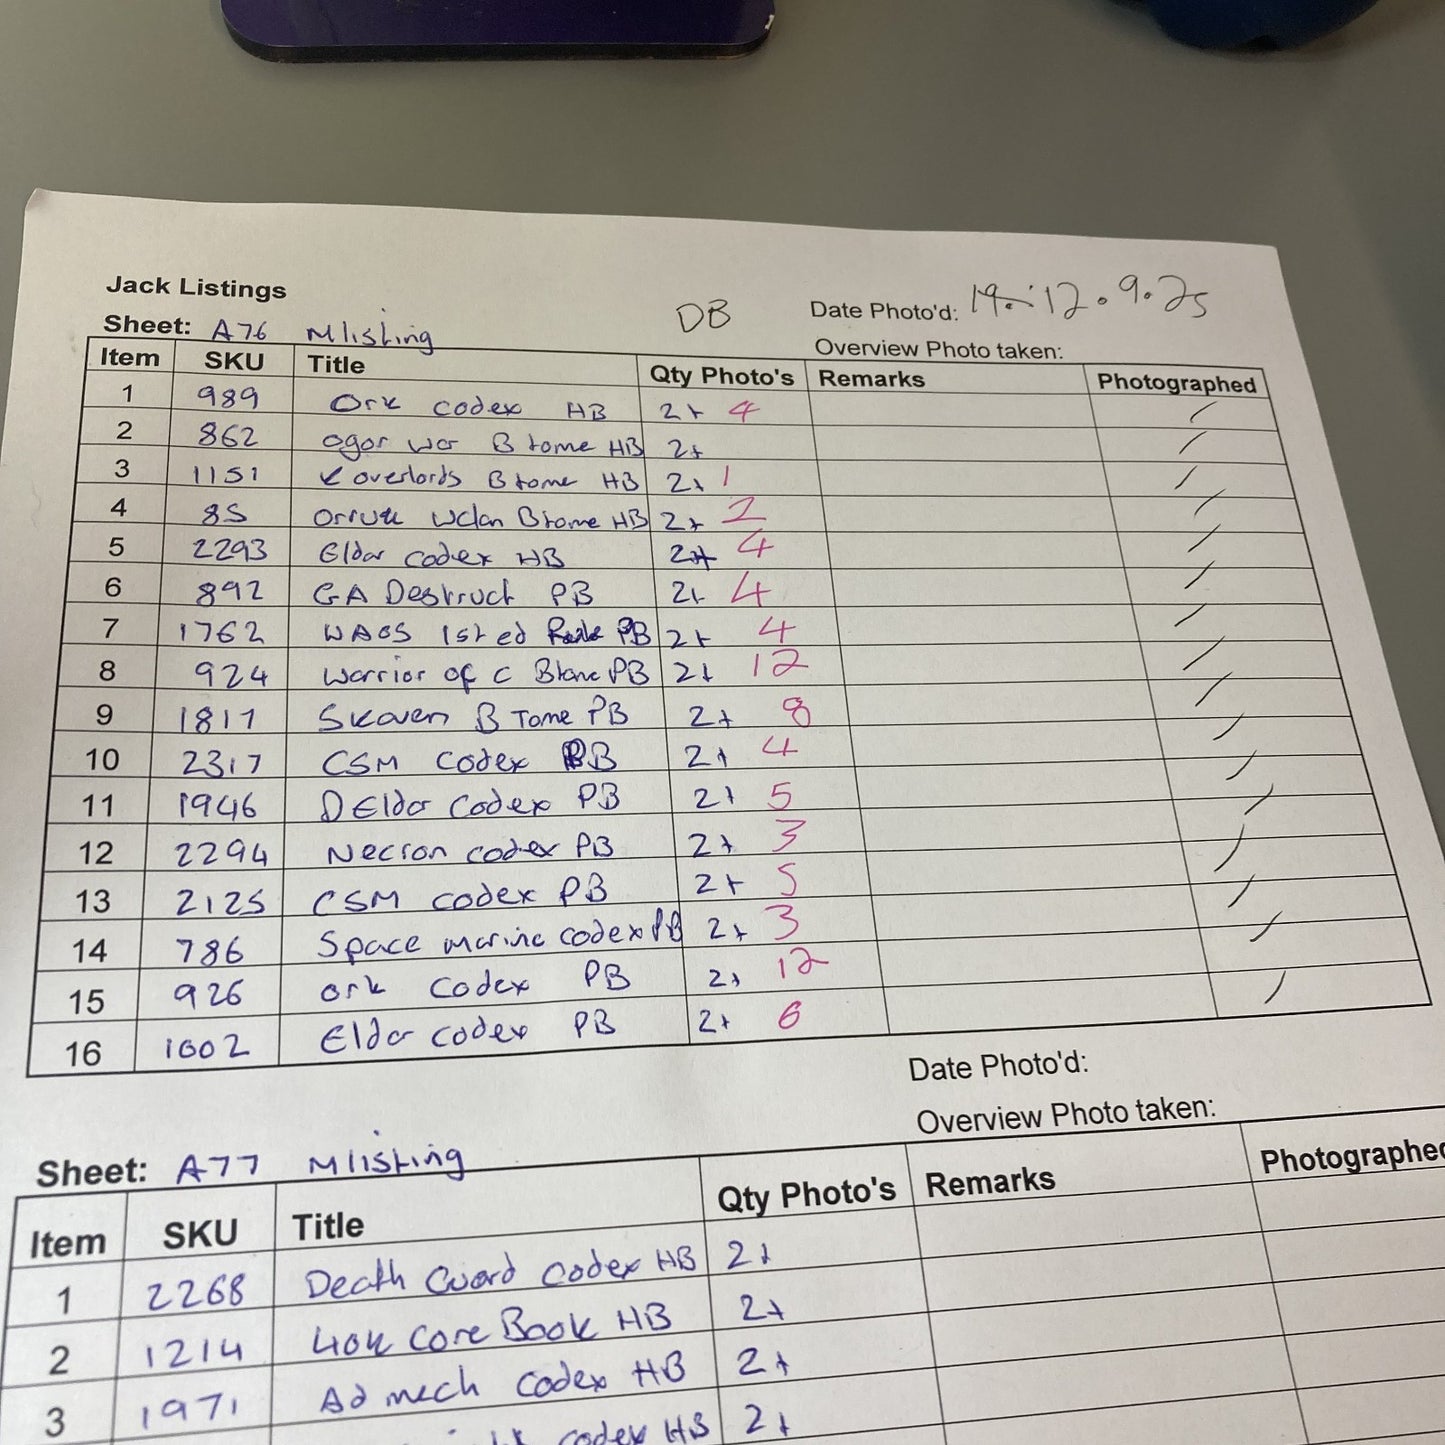 Jack Listings
Sheet: A76 Mlisting DB Date Photo'd: 19.12.9.25
Overview Photo taken:
Item SKU Title Qty Photo's Remarks Photographed
1 989 Ork codex HB 2+ 4 /
2 862 ogor war B tome HB 2+ /
3 1151 K overlords B tome HB 2+ 1 /
4 85 Orruk wclan Btome HB 2+ 2 /
5 2293 Eldar codex HB 2+ 4 /
6 892 GA Destruct PB 2+ 4 /
7 1762 WAOS 1st ed PB 2+ 4 /
8 924 Warrior of C Btome PB 2+ 12 /
9 1817 Skaven B Tome PB 2+ 8 /
10 2317 CSM codex PB 2+ 4 /
11 1946 D Eldar Codex PB 2+ 5 /
12 2294 Necron codex PB 2+ 3 /
13 2125 CSM codex PB 2+ 5 /
14 786 Space marine codex PB 2+ 3 /
15 926 Ork Codex PB 2+ 12 /
16 1002 Eldar codex PB 2+ 6 /
Date Photo'd:
Overview Photo taken:
Sheet: A77 Mlisting
Item SKU Title Qty Photo's Remarks Photographed
1 2268 Death Guard Codex HB 2+
2 1214 40k Core Book HB 2+
3 1971 Ad mech Codex HB 2+
codex HB 2+